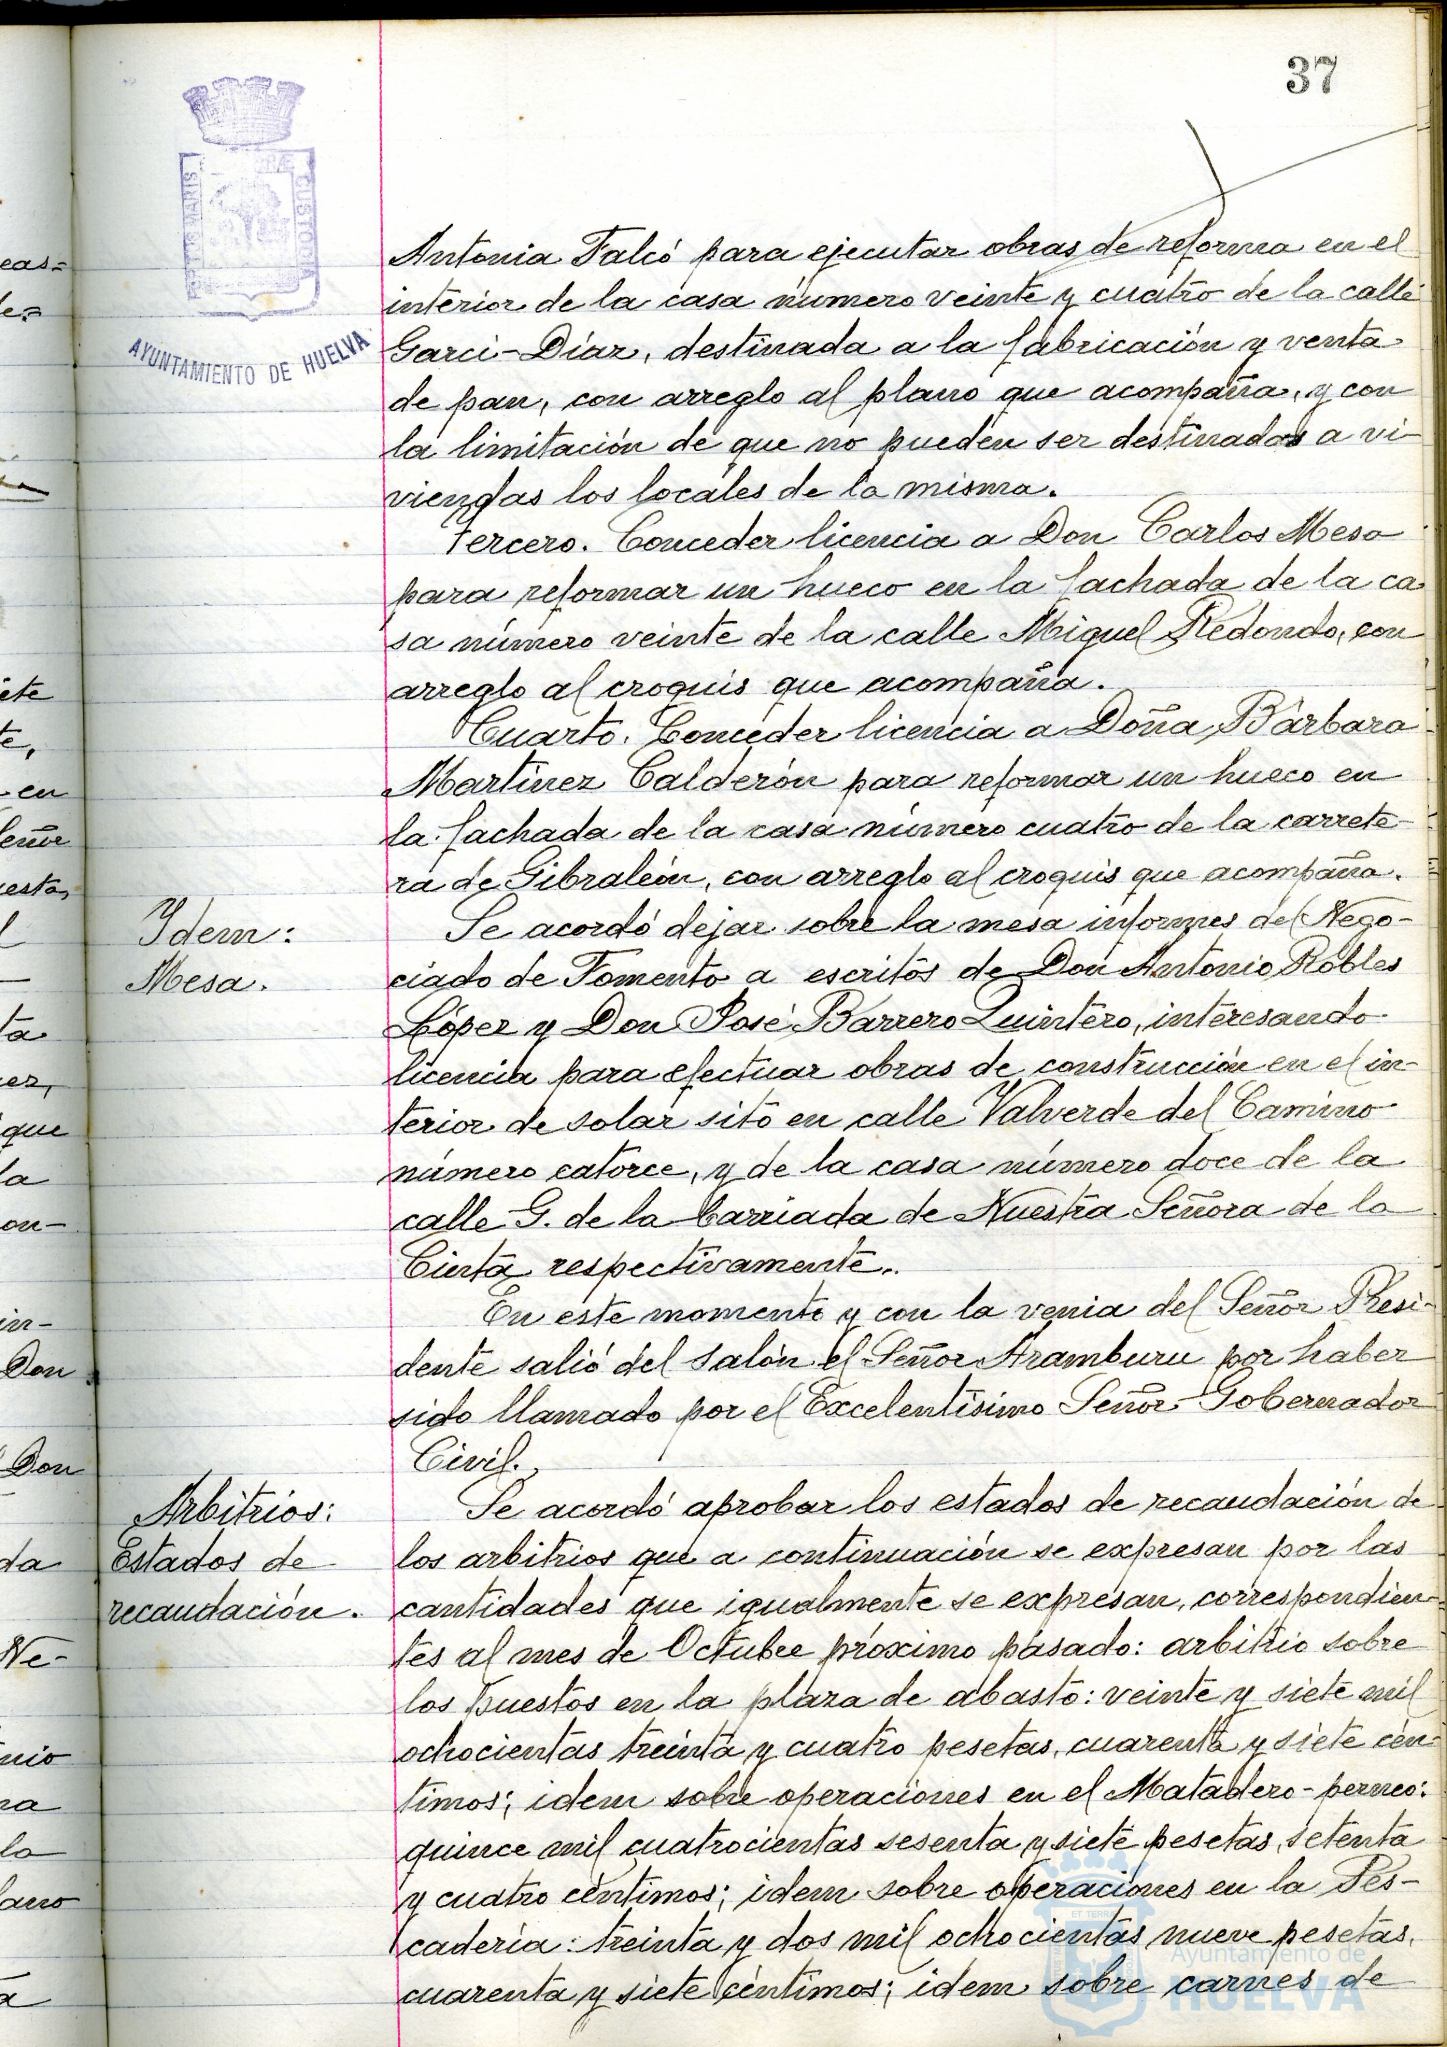 37
PORTUS MARIS ET TERRÆ CUSTODIA
AYUNTAMIENTO DE HUELVA
Antonia Falcó para ejecutar obras de reforma en el
interior de la casa número veinte y cuatro de la calle
Garci-Díaz, destinada a la fabricación y venta
de pan, con arreglo al plano que acompaña, y con
la limitación de que no pueden ser destinados a vi-
viendas los locales de la misma.
Tercero. Conceder licencia a Don Carlos Mesa
para reformar un hueco en la fachada de la ca
sa número veinte de la calle Miguel Redondo, con
arreglo al croquis que acompaña.
Cuarto. Conceder licencia a Doña Bárbara
Martínez Calderón para reformar un hueco en
la fachada de la casa número cuatro de la carrete-
ra de Gibraleón, con arreglo al croquis que acompaña.
Idem:
Mesa.
Se acordó dejar sobre la mesa informes del Nego-
ciado de Fomento a escritos de Don Antonio Robles
López y Don José Barrero Quintero, interesando
licencia para efectuar obras de construcción en el in-
terior de solar sito en calle Valverde del Camino
número catorce, y de la casa número doce de la
calle G. de la barriada de Nuestra Señora de la
Cinta respectivamente.
En este momento y con la venia del Señor Presi-
dente salió del salón el Señor Aramburu por haber
sido llamado por el Excelentísimo Señor Gobernador
Civil.
Arbitrios:
Estados de
recaudación.
Se acordó aprobar los estados de recaudación de
los arbitrios que a continuación se expresan por las
cantidades que igualmente se expresan, correspondien-
tes al mes de Octubre próximo pasado: arbitrio sobre
los puestos en la plaza de abasto: veinte y siete mil
ochocientas treinta y cuatro pesetas, cuarenta y siete cén-
timos; idem sobre operaciones en el Matadero-perneo:
quince mil cuatrocientas sesenta y siete pesetas, setenta
y cuatro céntimos; idem sobre operaciones en la Pes-
cadería: treinta y dos mil ochocientas nueve pesetas,
cuarenta y siete céntimos; idem sobre carnes de
Ayuntamiento de
HUELVA